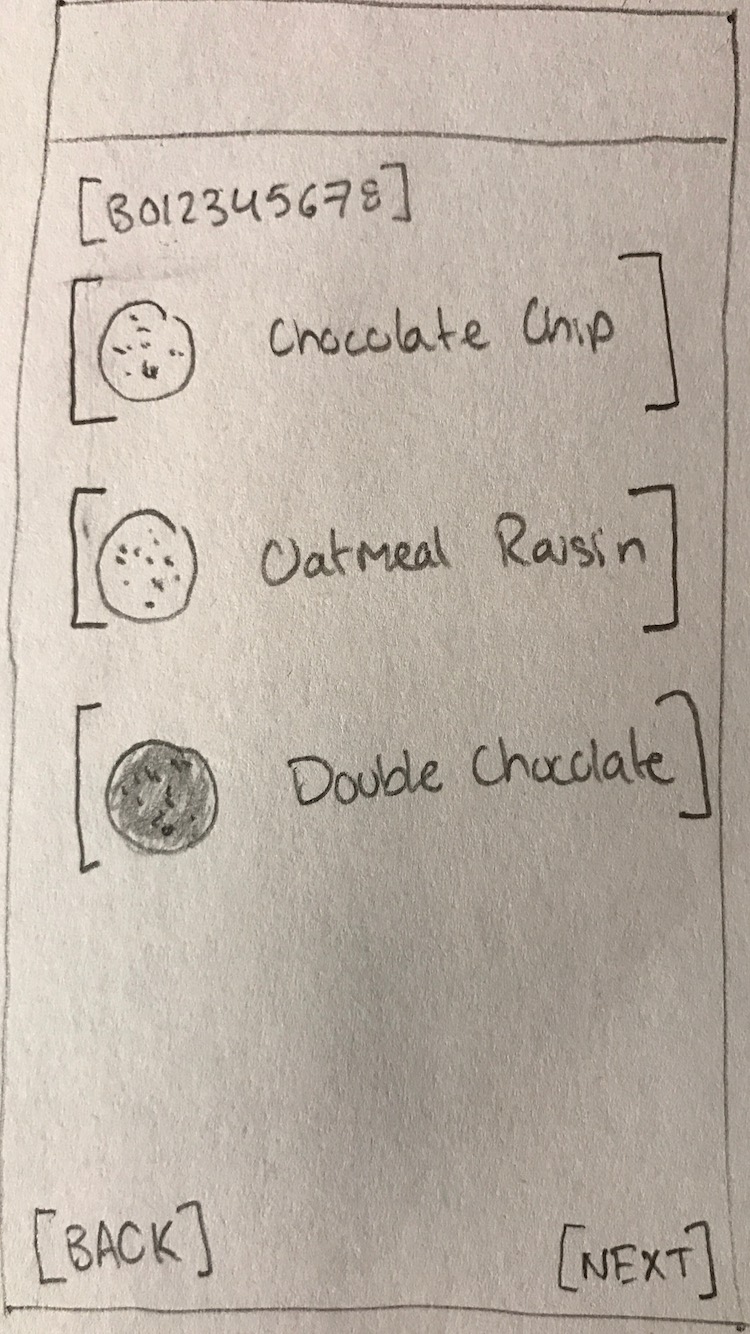 [B012345678]
[Chocolate Chip]
[Oatmeal Raisin]
[Double Chocolate]
[BACK] [NEXT]